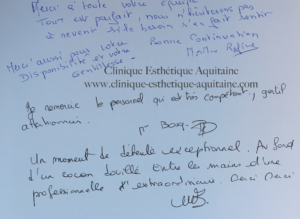 Merci à toute votre équipe
Tout est parfait, nous n'hésiterons pas
à revenir si le besoin s'en fait sentir
Bonne Continuation
Merci aussi pour votre
Disponibilité et votre
gentillesse.
Clinique Esthétique Aquitaine
www.clinique-esthetique-aquitaine.com
Je remercie le personnel qui est très compétent, gentil
attentionné.
Un moment de détente exceptionnel. Au fond
d'un cocon douillé entre les mains d'une
professionnelle d'extraordinaire. Merci Merci